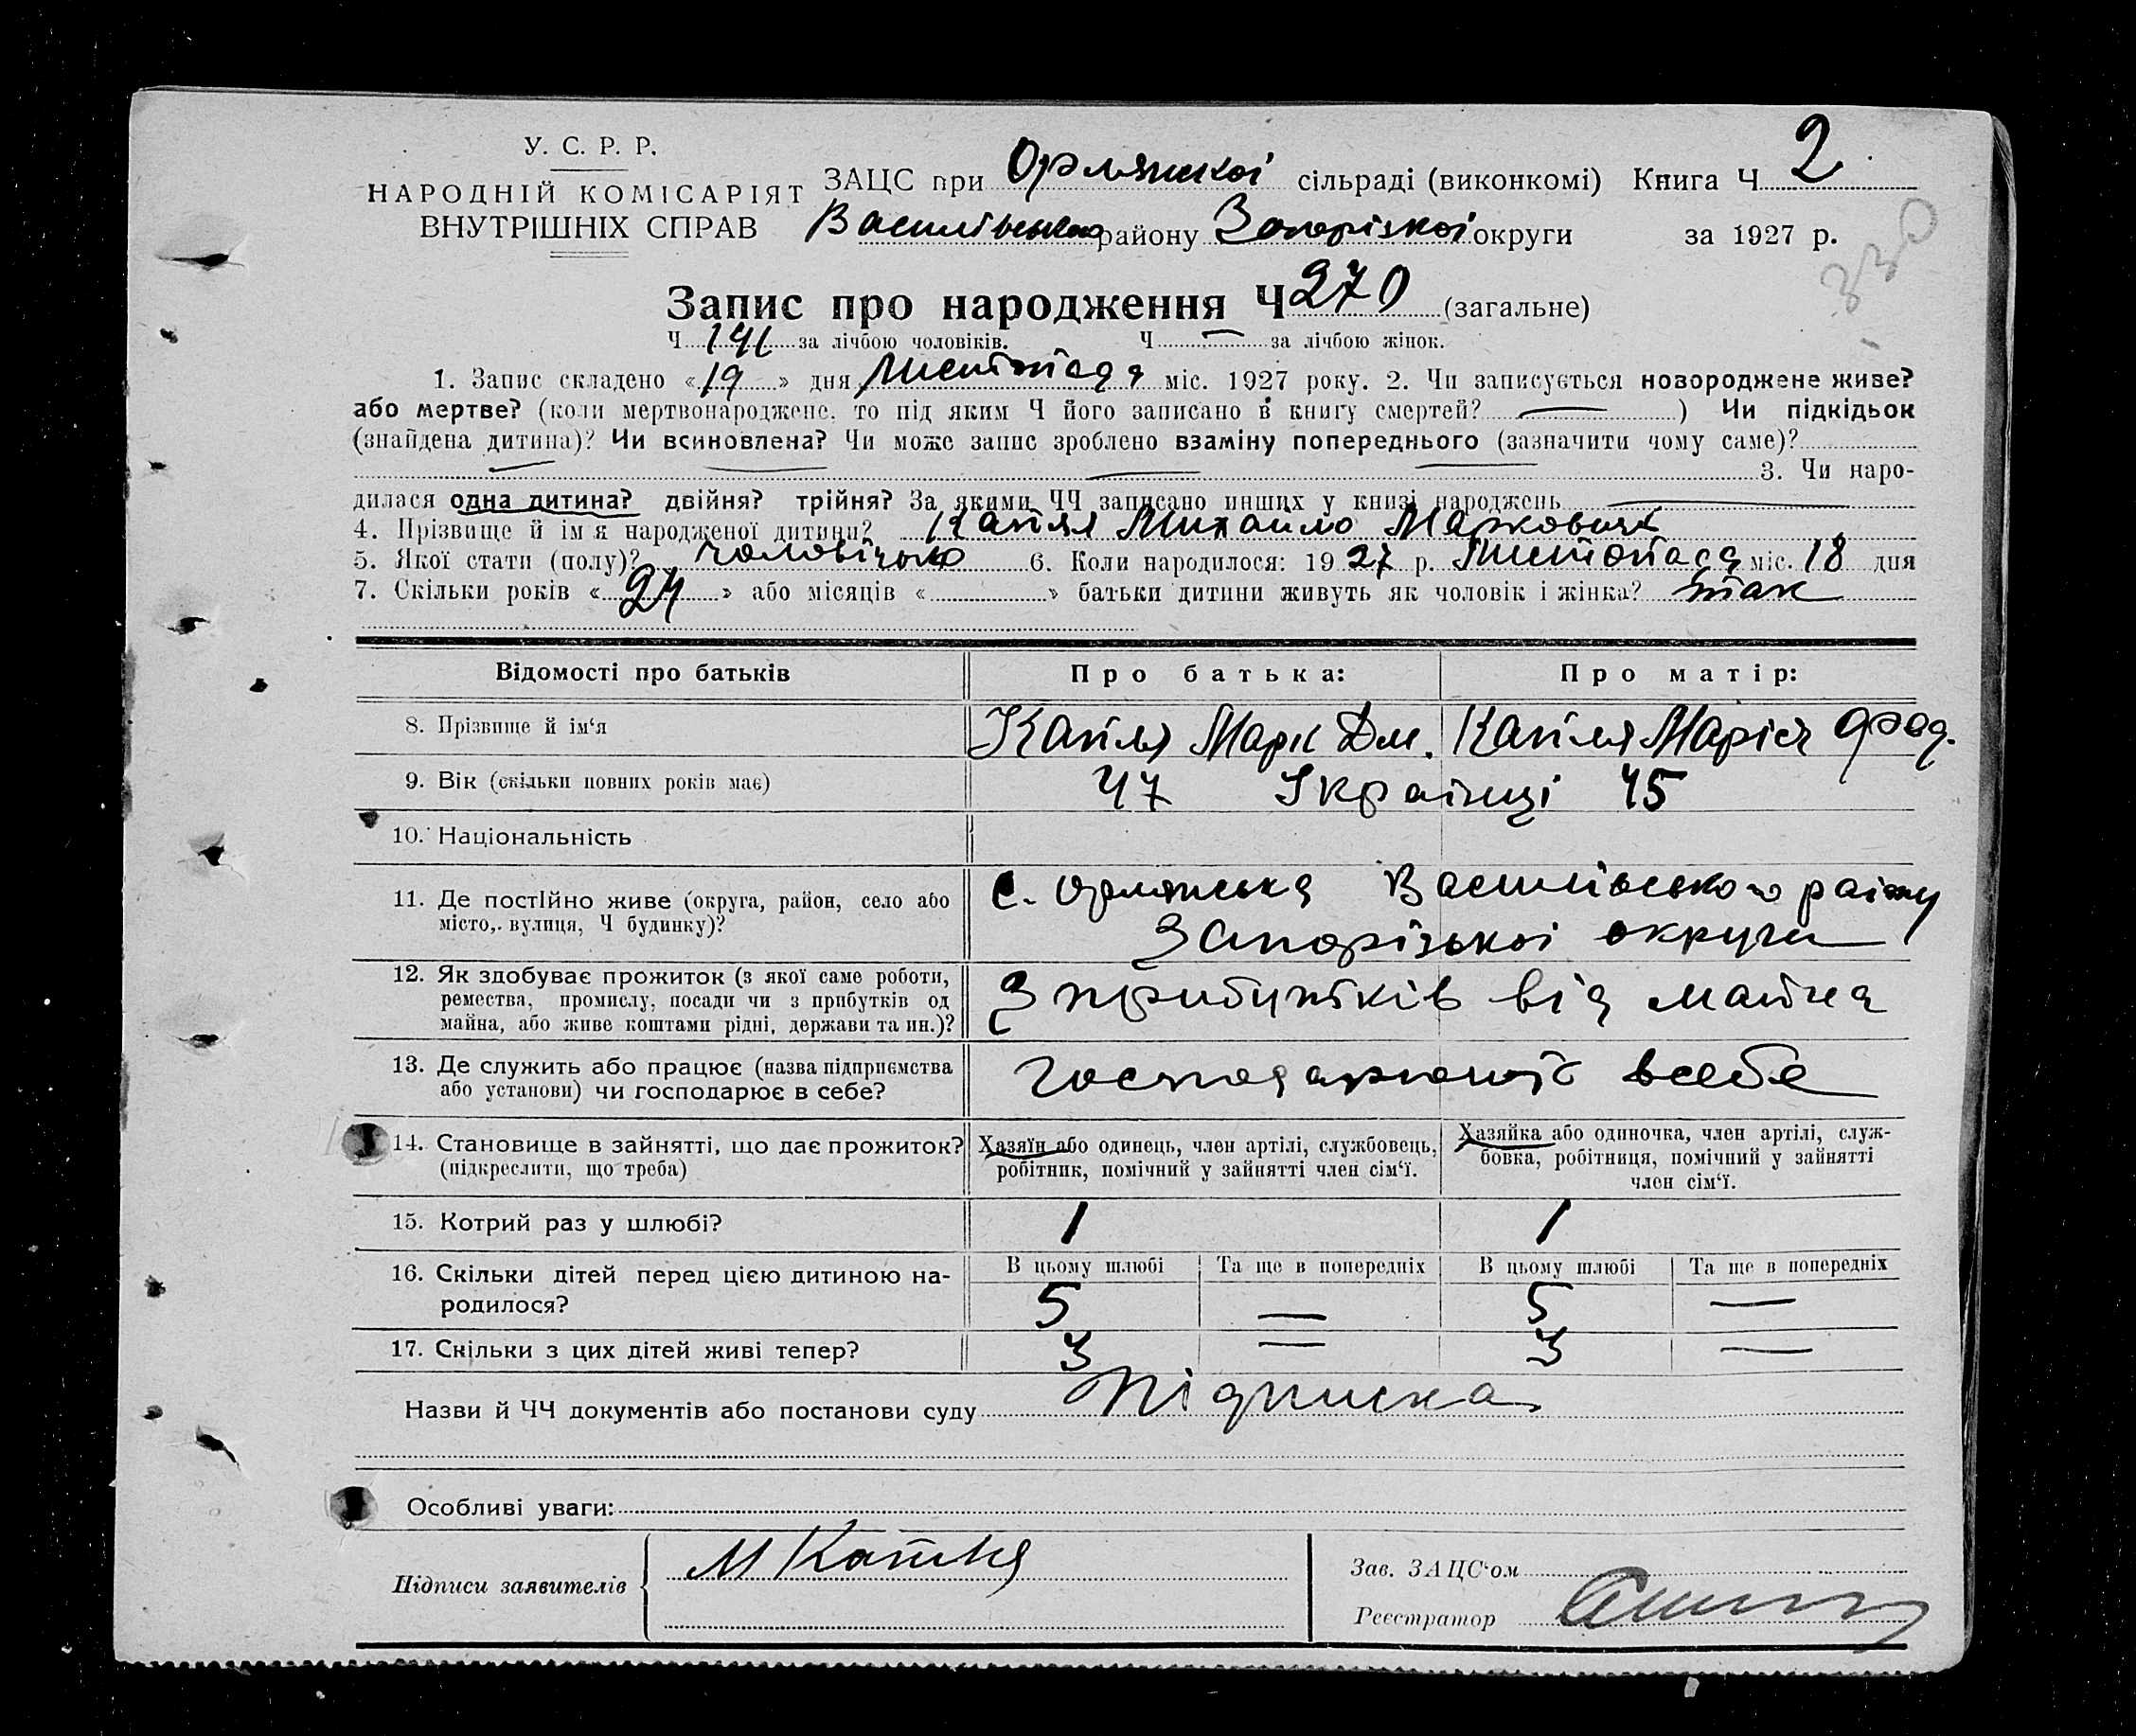 У. С. Р. Р.
НАРОДНІЙ КОМІСАРІЯТ
ВНУТРІШНІХ СПРАВ
ЗАЦС при Орлянській сільраді (виконкомі) Книга Ч 2
Василівського району Запорізкої округи за 1927 р.
330
Запис про народження Ч 270 (загальне)
Ч 141 за лічбою чоловіків. Ч — за лічбою жінок.
1. Запис складено «19» дня Листопада міс. 1927 року. 2. Чи записується новороджене живе?
або мертве? (коли мертвонароджене, то під яким Ч його записано в книгу смертей? — ) Чи підкідьок
(знайдена дитина)? Чи всиновлена? Чи може запис зроблено взаміну попереднього (зазначити чому саме)?
— — — — 3. Чи наро-
дилася одна дитина? двійня? трійня? За якими ЧЧ записано инших у книзі народжень —
4. Прізвище й ім'я народженої дитини? Капля Михайло Маркович
5. Якої стати (полу)? чоловічого 6. Коли народилося: 1927 р. Листопада міс. 18 дня
7. Скільки років «24» або місяців « » батьки дитини живуть як чоловік і жінка? так
Відомості про батьків Про батька: Про матір:
8. Прізвище й ім'я Капля Марк Дм. Капля Марія Фед.
9. Вік (скільки повних років має) 47 Українці 45
10. Національність
11. Де постійно живе (округа, район, село або
місто, вулиця, Ч будинку)?
с. Орлянська Василівського району
Запорізької округи
12. Як здобуває прожиток (з якої саме роботи,
ремества, промислу, посади чи з прибутків од
майна, або живе коштами рідні, держави та ин.)?
З прибутків від майна
13. Де служить або працює (назва підприємства
або установи) чи господарює в себе?
господарюють всебе
14. Становище в зайнятті, що дає прожиток?
(підкреслити, що треба)
Хазяїн або одинець, член артілі, службовець,
робітник, помічний у зайнятті член сім'ї.
Хазяйка або одиночка, член артілі, служ-
бовка, робітниця, помічний у зайнятті
член сім'ї.
15. Котрий раз у шлюбі? 1 1
16. Скільки дітей перед цією дитиною на-
родилося?
В цьому шлюбі Та ще в попередніх В цьому шлюбі Та ще в попередніх
5 — 5 —
17. Скільки з цих дітей живі тепер? 3 — 3 —
Назви й ЧЧ документів або постанови суду Підписка
Особливі уваги:
Підписи заявителів М Капля
Зав. ЗАЦС'ом
Реєстратор